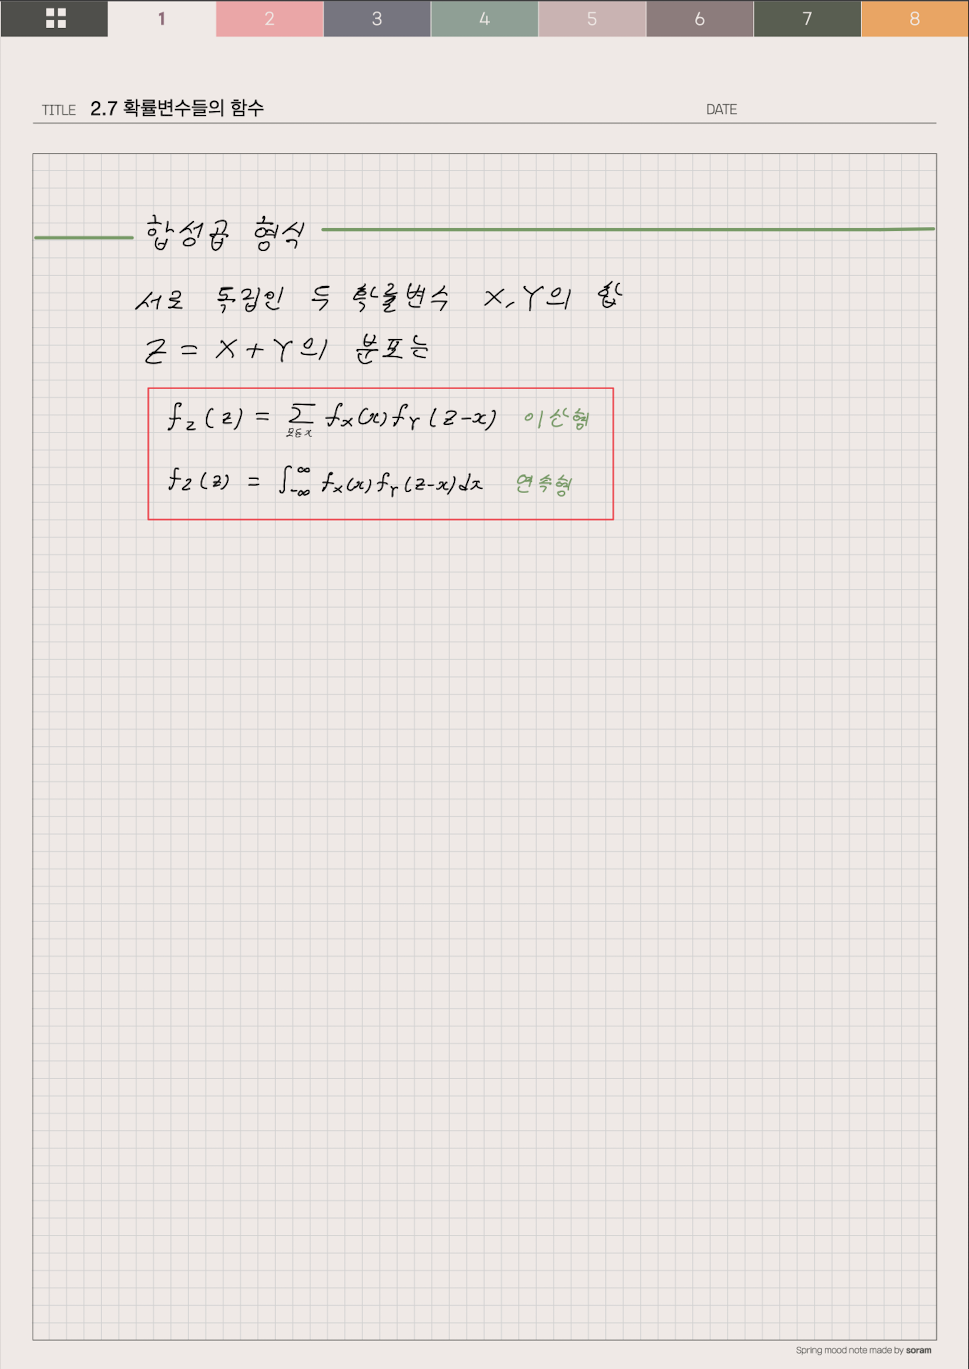 1 2 3 4 5 6 7 8
TITLE 2.7 확률변수들의 함수 DATE
합성곱 형식
서로 독립인 두 확률변수 X, Y의 합
Z = X + Y의 분포는
f_Z(z) = ∑_{모든 x} f_X(x) f_Y(z-x) 이산형
f_Z(z) = ∫_{-∞}^{∞} f_X(x) f_Y(z-x) dx 연속형
Spring mood note made by soram